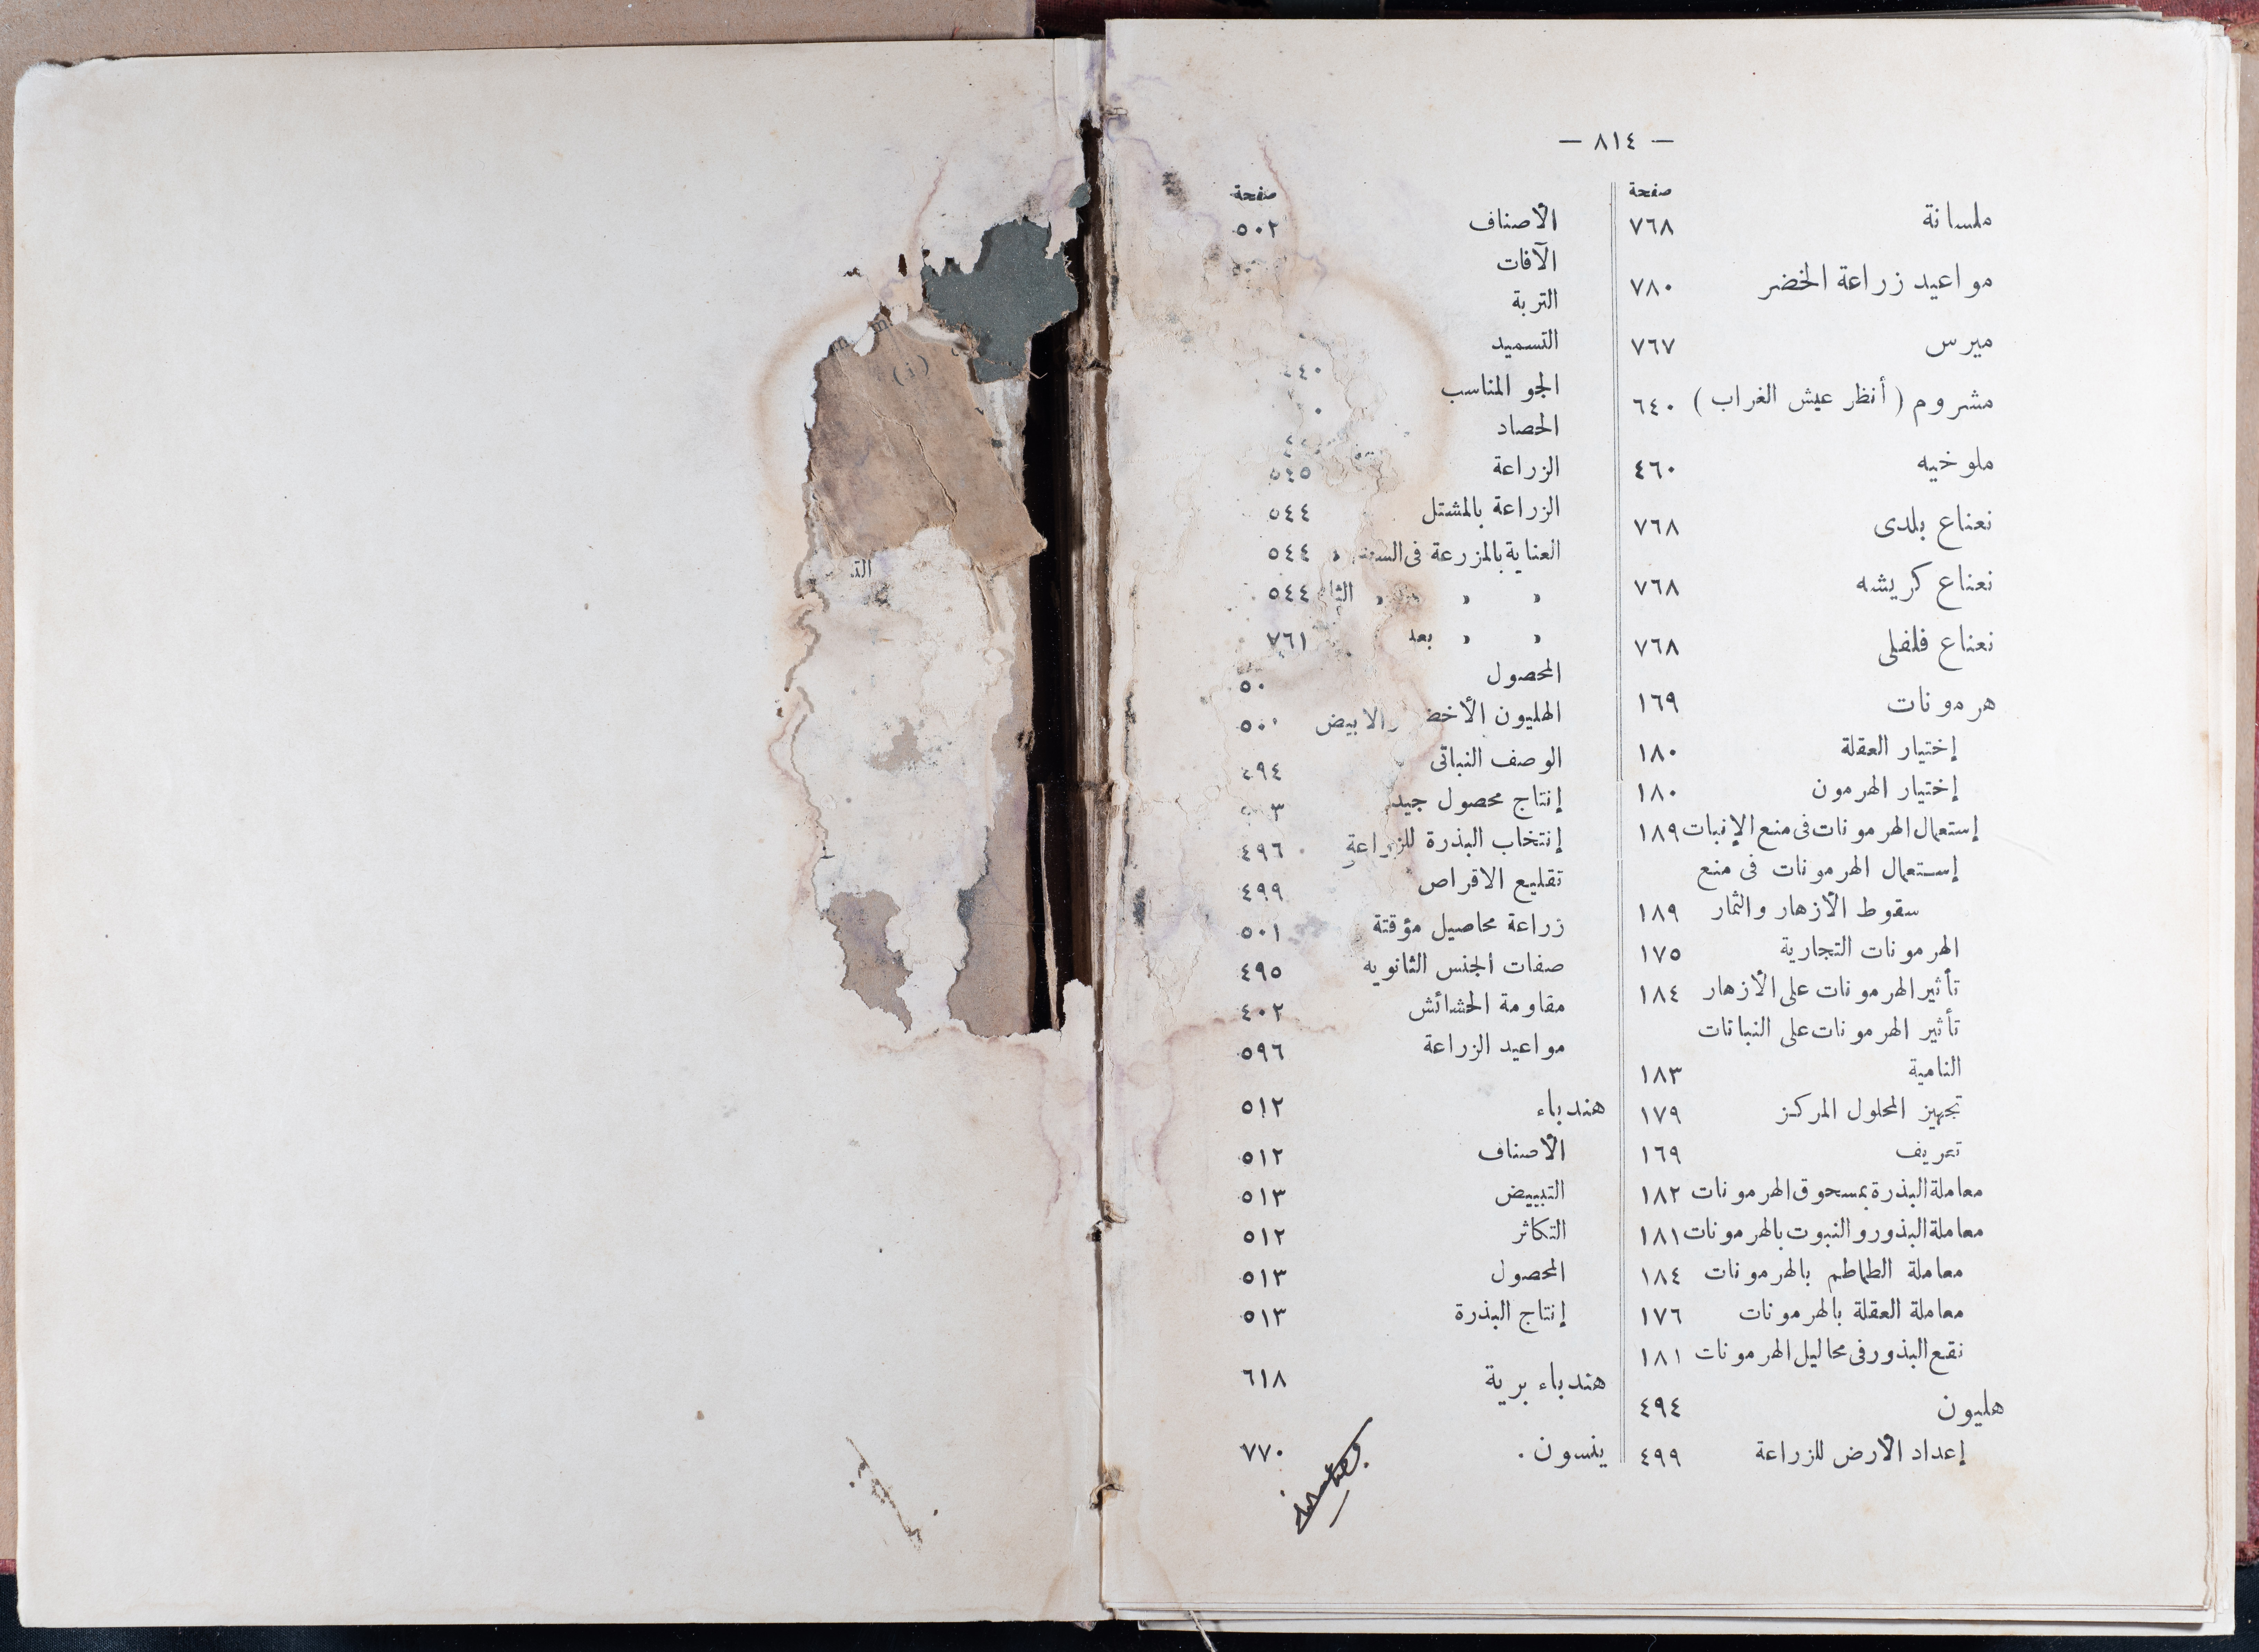 — ٨١٤ —
صفحة
ملسانة ٧٦٨
مواعيد زراعة الخضر ٧٨٠
ميرس ٧٦٧
مشروم ( أنظر عيش الغراب ) ٦٤٠
ملوخيه ٤٦٠
نعناع بلدى ٧٦٨
نعناع كريشه ٧٦٨
نعناع فلفلى ٧٦٨
هرمونات ١٦٩
إختيار العقلة ١٨٠
إختيار الهرمون ١٨٠
إستعمال الهرمونات فى منع الإنبات ١٨٩
إستعمال الهرمونات فى منع
سقوط الأزهار والثمار ١٨٩
الهرمونات التجارية ١٧٥
تأثير الهرمونات على الأزهار ١٨٤
تأثير الهرمونات على النباتات
النامية ١٨٣
تجهيز المحلول المركز ١٧٩
تعريف ١٦٩
معاملة البذرة بمسحوق الهرمونات ١٨٢
معاملة البذور والنبوت بالهرمونات ١٨١
معاملة الطماطم بالهرمونات ١٨٤
معاملة العقلة بالهرمونات ١٧٦
نقع البذور فى محاليل الهرمونات ١٨١
هليون ٤٩٤
إعداد الأرض للزراعة ٤٩٩
صفحة
الأصناف ٥٠٢
الآفات
التربة
التسميد
الجو المناسب
الحصاد
الزراعة ٥٤٥
الزراعة بالمشتل ٥٤٤
العناية بالمزرعة فى ٥٤٤
» » » ٥٤٤
» » بعد ٧٦١
المحصول
الهليون الأخضر والابيض
الوصف النباتى ٤٩٤
إنتاج محصول جيد
إنتخاب البذرة للزراعة ٤٩٦
تقليع الاقراص ٤٩٩
زراعة محاصيل مؤقتة ٥٠١
صفات الجنس الثانويه ٤٩٥
مقاومة الحشائش ٤٠٢
مواعيد الزراعة ٥٩٦
هندباء ٥١٢
الأصناف ٥١٢
التبييض ٥١٣
التكاثر ٥١٢
المحصول ٥١٣
إنتاج البذرة ٥١٣
هندباء برية ٦١٨
ينسون . ٧٧٠